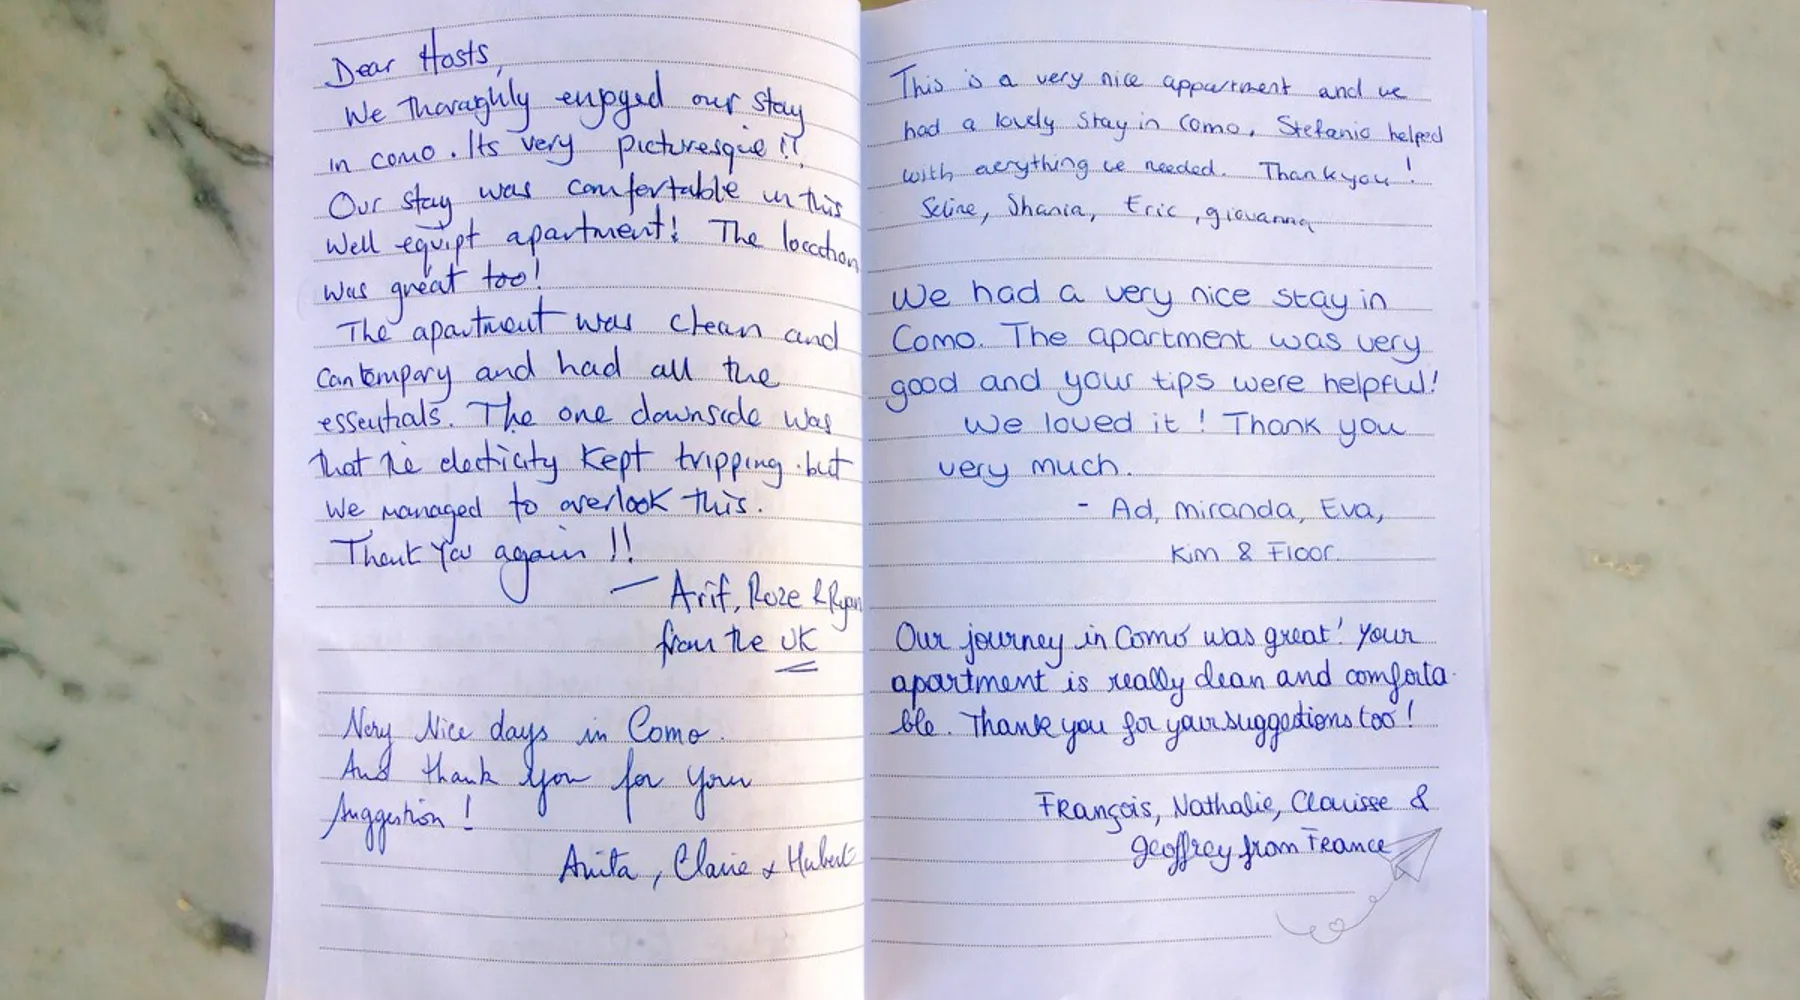 Dear Hosts,
We thoraghly enjoyed our stay
in como. Its very picturesque!!
Our stay was comfortable in this
well equipt apartment! The location
was great too!
The apartment was clean and
contempary and had all the
essentials. The one downside was
that the electicity kept tripping but
we managed to overlook this.
Thank you again !!
— Arif, Roze & Ryan
from the UK
Very Nice days in Como.
And thank you for your
suggestion !
Anita, Claire & Hubert
This is a very nice appartment and we
had a lovely stay in Como. Stefanio helped
with everything we needed. Thank you!
Seline, Shania, Eric, giovanna
We had a very nice stay in
Como. The apartment was very
good and your tips were helpful!
We loved it! Thank you
very much.
- Ad, miranda, Eva,
Kim & Floor.
Our journey in Como was great! Your
apartment is really clean and comforta-
ble. Thank you for your suggestions too!
François, Nathalie, Clarisse &
Geoffrey from France